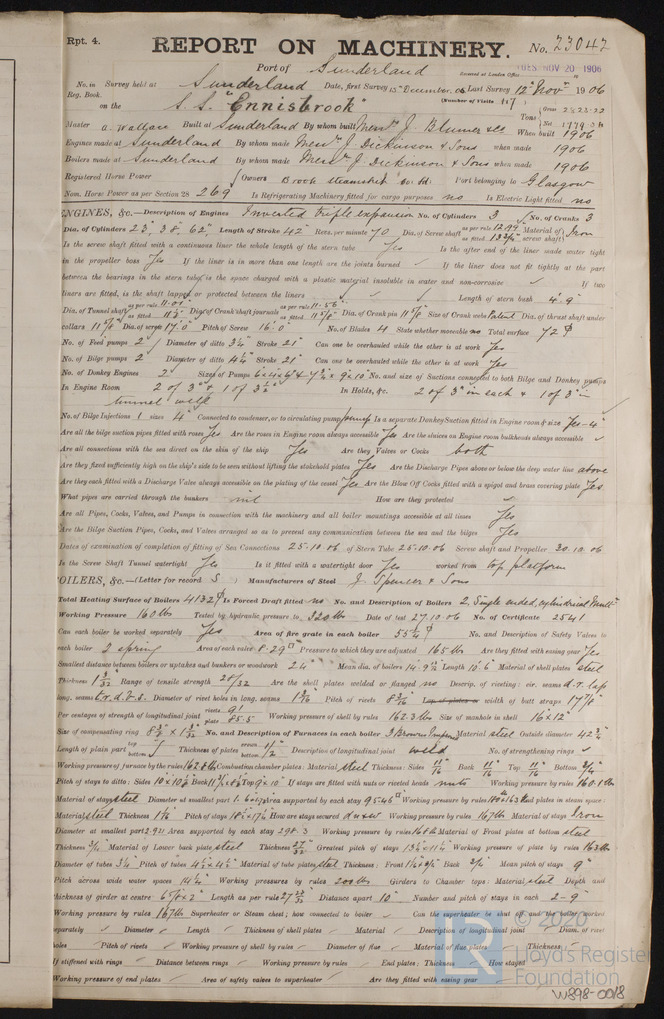 Rpt. 4.
REPORT ON MACHINERY.
No. 23042
Port of Sunderland
Received at London Office TUES. NOV 20 1906
No. in Survey held at Sunderland Date, first Survey 15th December 05 Last Survey 12th Nov 1906
Reg. Book.
on the S.S. "Ennisbrook" (Number of Visits 47)
Tons Gross 2823.22 Net 1779
Master A. Wallace Built at Sunderland By whom built Messrs J. Blumer & Co When built 1906
Engines made at Sunderland By whom made Messrs J. Dickinson & Sons when made 1906
Boilers made at Sunderland By whom made Messrs J. Dickinson & Sons when made 1906
Registered Horse Power Owners Brook Steamship Co Ltd Port belonging to Glasgow
Nom. Horse Power as per Section 28 269 Is Refrigerating Machinery fitted for cargo purposes no Is Electric Light fitted no
ENGINES, &c.—Description of Engines Inverted triple expansion No. of Cylinders 3 No. of Cranks 3
Dia. of Cylinders 23", 38", 62" Length of Stroke 42" Revs. per minute 70 Dia. of Screw shaft as per rule as fitted Material of screw shaft Iron
Is the screw shaft fitted with a continuous liner the whole length of the stern tube Yes Is the after end of the liner made water tight
in the propeller boss Yes If the liner is in more than one length are the joints burned If the liner does not fit tightly at the part
between the bearings in the stern tube, is the space charged with a plastic material insoluble in water and non-corrosive If two
liners are fitted, is the shaft lapped or protected between the liners Length of stern bush 4'.9"
Dia. of Tunnel shaft as per rule 11.01" as fitted Dia. of Crank shaft journals as per rule 11.56" as fitted 11 5/8" Dia. of Crank pin Size of Crank webs Patent Dia. of thrust shaft under
collars 11 5/8" Dia. of screw 17'.0" Pitch of Screw 16'.0" No. of Blades 4 State whether moveable no Total surface 72
No. of Feed pumps 2 Diameter of ditto Stroke 21" Can one be overhauled while the other is at work Yes
No. of Bilge pumps 2 Diameter of ditto Stroke 21" Can one be overhauled while the other is at work Yes
No. of Donkey Engines 2 Sizes of Pumps No. and size of Suctions connected to both Bilge and Donkey pumps
In Engine Room 2 of 3" & 1 of 3 1/2" In Holds, &c. 2 of 3" in each & 1 of 3" in
tunnel well
No. of Bilge Injections 1 sizes 4" Connected to condenser, or to circulating pump pump Is a separate Donkey Suction fitted in Engine room & size Yes - 4"
Are all the bilge suction pipes fitted with roses Yes Are the roses in Engine room always accessible Yes Are the sluices on Engine room bulkheads always accessible
Are all connections with the sea direct on the skin of the ship Yes Are they Valves or Cocks both
Are they fixed sufficiently high on the ship's side to be seen without lifting the stokehold plates Yes Are the Discharge Pipes above or below the deep water line above
Are they each fitted with a Discharge Valve always accessible on the plating of the vessel Yes Are the Blow Off Cocks fitted with a spigot and brass covering plate Yes
What pipes are carried through the bunkers nil How are they protected
Are all Pipes, Cocks, Valves, and Pumps in connection with the machinery and all boiler mountings accessible at all times Yes
Are the Bilge Suction Pipes, Cocks, and Valves arranged so as to prevent any communication between the sea and the bilges Yes
Dates of examination of completion of fitting of Sea Connections 25.10.06 of Stern Tube 25.10.06 Screw shaft and Propeller 30.10.06
Is the Screw Shaft Tunnel watertight Yes Is it fitted with a watertight door Yes worked from top platform
BOILERS, &c.—(Letter for record S) Manufacturers of Steel J. Spencer & Sons
Total Heating Surface of Boilers 4132 Is Forced Draft fitted no No. and Description of Boilers 2, Single ended, cylindrical
Working Pressure 160 lbs Tested by hydraulic pressure to 320 lbs Date of test 27.10.06 No. of Certificate 2541
Can each boiler be worked separately Yes Area of fire grate in each boiler No. and Description of Safety Valves to
each boiler 2 spring Area of each valve 8.29 Pressure to which they are adjusted 165 lbs Are they fitted with easing gear Yes
Smallest distance between boilers or uptakes and bunkers or woodwork 24" Mean dia. of boilers Length 10'.6" Material of shell plates steel
Thickness Range of tensile strength 28/32 Are the shell plates welded or flanged no Descrip. of riveting: cir. seams d.r. lap
long. seams t.r.d.b.s. Diameter of rivet holes in long. seams Pitch of rivets Lap of plates or width of butt straps
Per centages of strength of longitudinal joint rivets 91 plate 85.5 Working pressure of shell by rules 162.3 lbs Size of manhole in shell 16" x 12"
Size of compensating ring No. and Description of Furnaces in each boiler Material steel Outside diameter
Length of plain part top bottom Thickness of plates crown bottom Description of longitudinal joint weld No. of strengthening rings
Working pressure of furnace by the rules 162.8 lbs Combustion chamber plates: Material steel Thickness: Sides 11/16" Back 11/16" Top 11/16" Bottom
Pitch of stays to ditto: Sides Back Top If stays are fitted with nuts or riveted heads nuts Working pressure by rules
Material of stays steel Diameter at smallest part Area supported by each stay Working pressure by rules End plates in steam space:
Material steel Thickness Pitch of stays How are stays secured Working pressure by rules 167 lbs Material of stays Iron
Diameter at smallest part Area supported by each stay 298.3 Working pressure by rules Material of Front plates at bottom steel
Thickness Material of Lower back plate steel Thickness Greatest pitch of stays Working pressure of plate by rules 163 lbs
Diameter of tubes 3 1/4" Pitch of tubes Material of tube plates steel Thickness: Front Back Mean pitch of stays 9"
Pitch across wide water spaces Working pressures by rules 200 lbs Girders to Chamber tops: Material steel Depth and
thickness of girder at centre Length as per rule Distance apart 10" Number and pitch of stays in each 2 - 9"
Working pressure by rules 167 lb Superheater or Steam chest; how connected to boiler Can the superheater be shut off and the boiler worked
separately Diameter Length Thickness of shell plates Material Description of longitudinal joint Diam. of rivet
holes Pitch of rivets Working pressure of shell by rules Diameter of flue Material of flue plates Thickness
If stiffened with rings Distance between rings Working pressure by rules End plates: Thickness How stayed
Working pressure of end plates Area of safety valves to superheater Are they fitted with easing gear
© 2020
LR
Lloyd's Register
Foundation
W898-0018